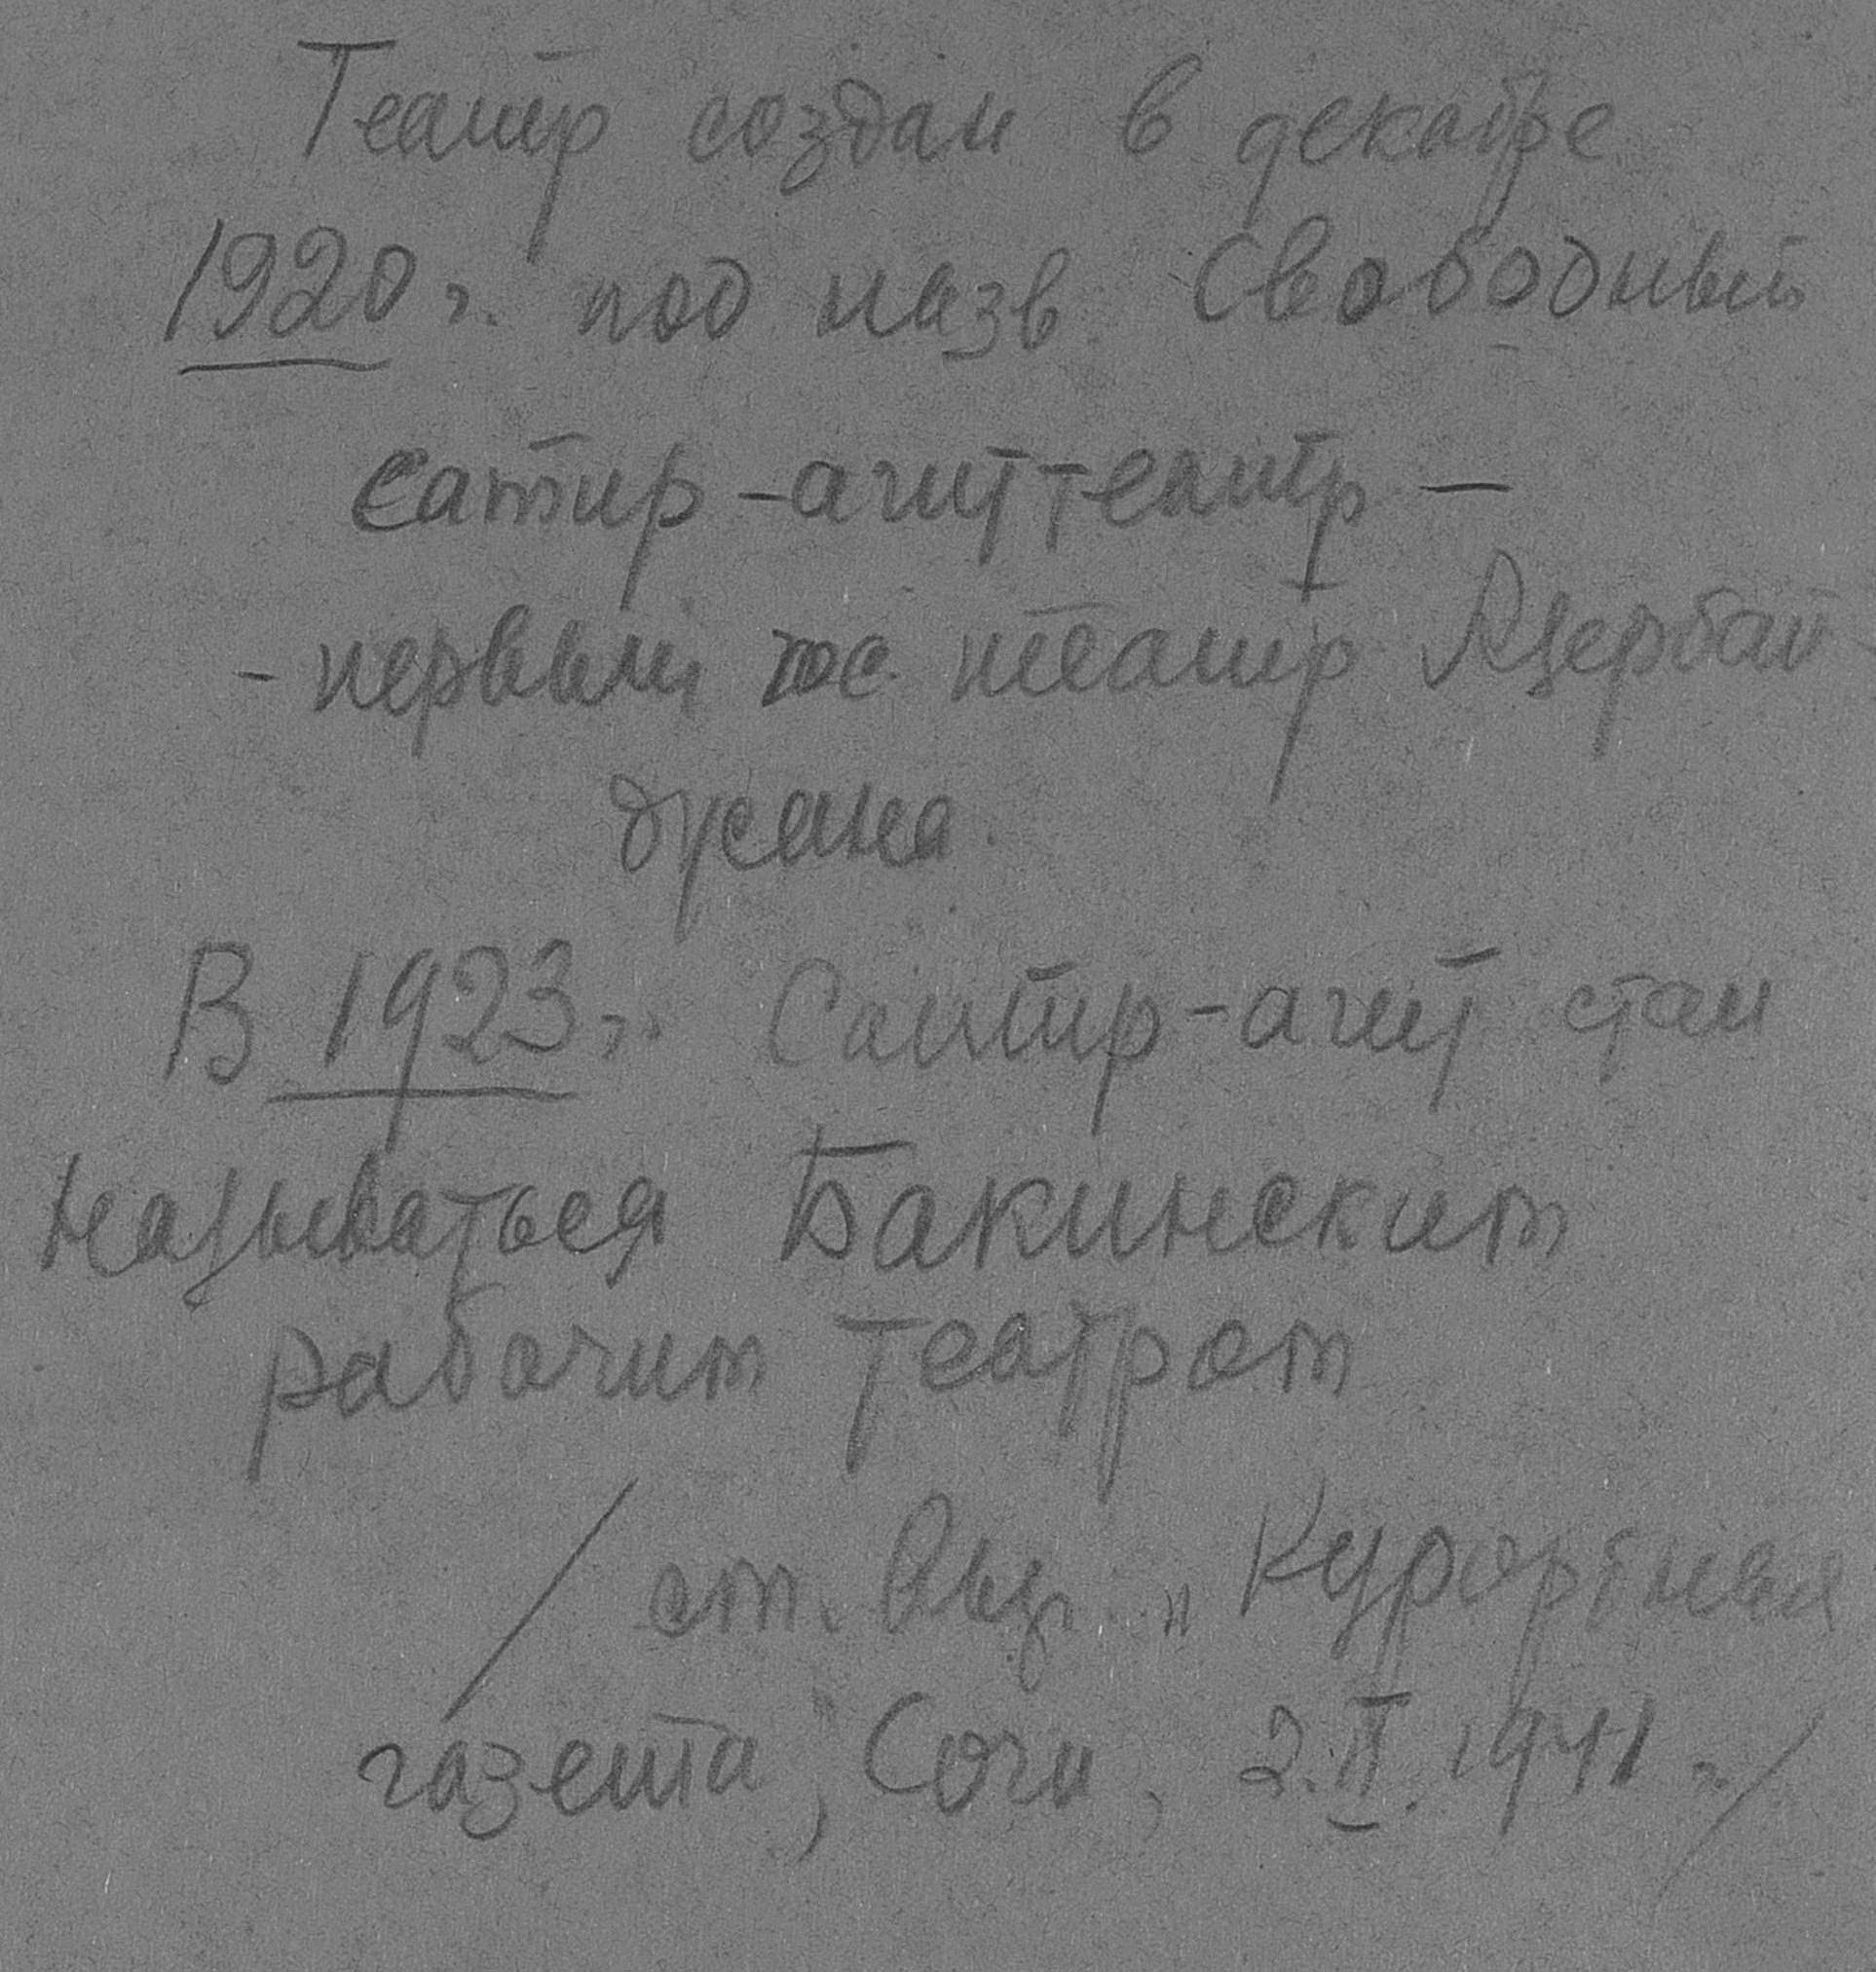 Театр создан в декабре
1920 г. под назв. Свободный
сатир-агиттеатр —
- первый гос. театр Азербай-
джана.
В 1923 г. Сатир-агит стал
называться Бакинским
рабочим театром
/ ст. "Курортная
газета", Сочи, 2.II.1941 г./